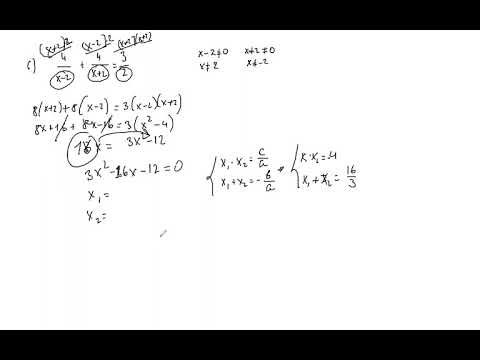 (x+2)2 (x-2)2 (x-2)(x+2)
c) 4/(x-2) + 4/(x+2) = 3/2
x-2≠0 x+2≠0
x≠2 x≠-2
8(x+2)+8(x-2)=3(x-2)(x+2)
8x+16+8x-16=3(x²-4)
16x= 3x²-12
3x²-16x-12=0
x₁=
x₂=
{ x₁·x₂=c/a
x₁+x₂=-b/a
{ x₁·x₂=-4
x₁+x₂=16/3